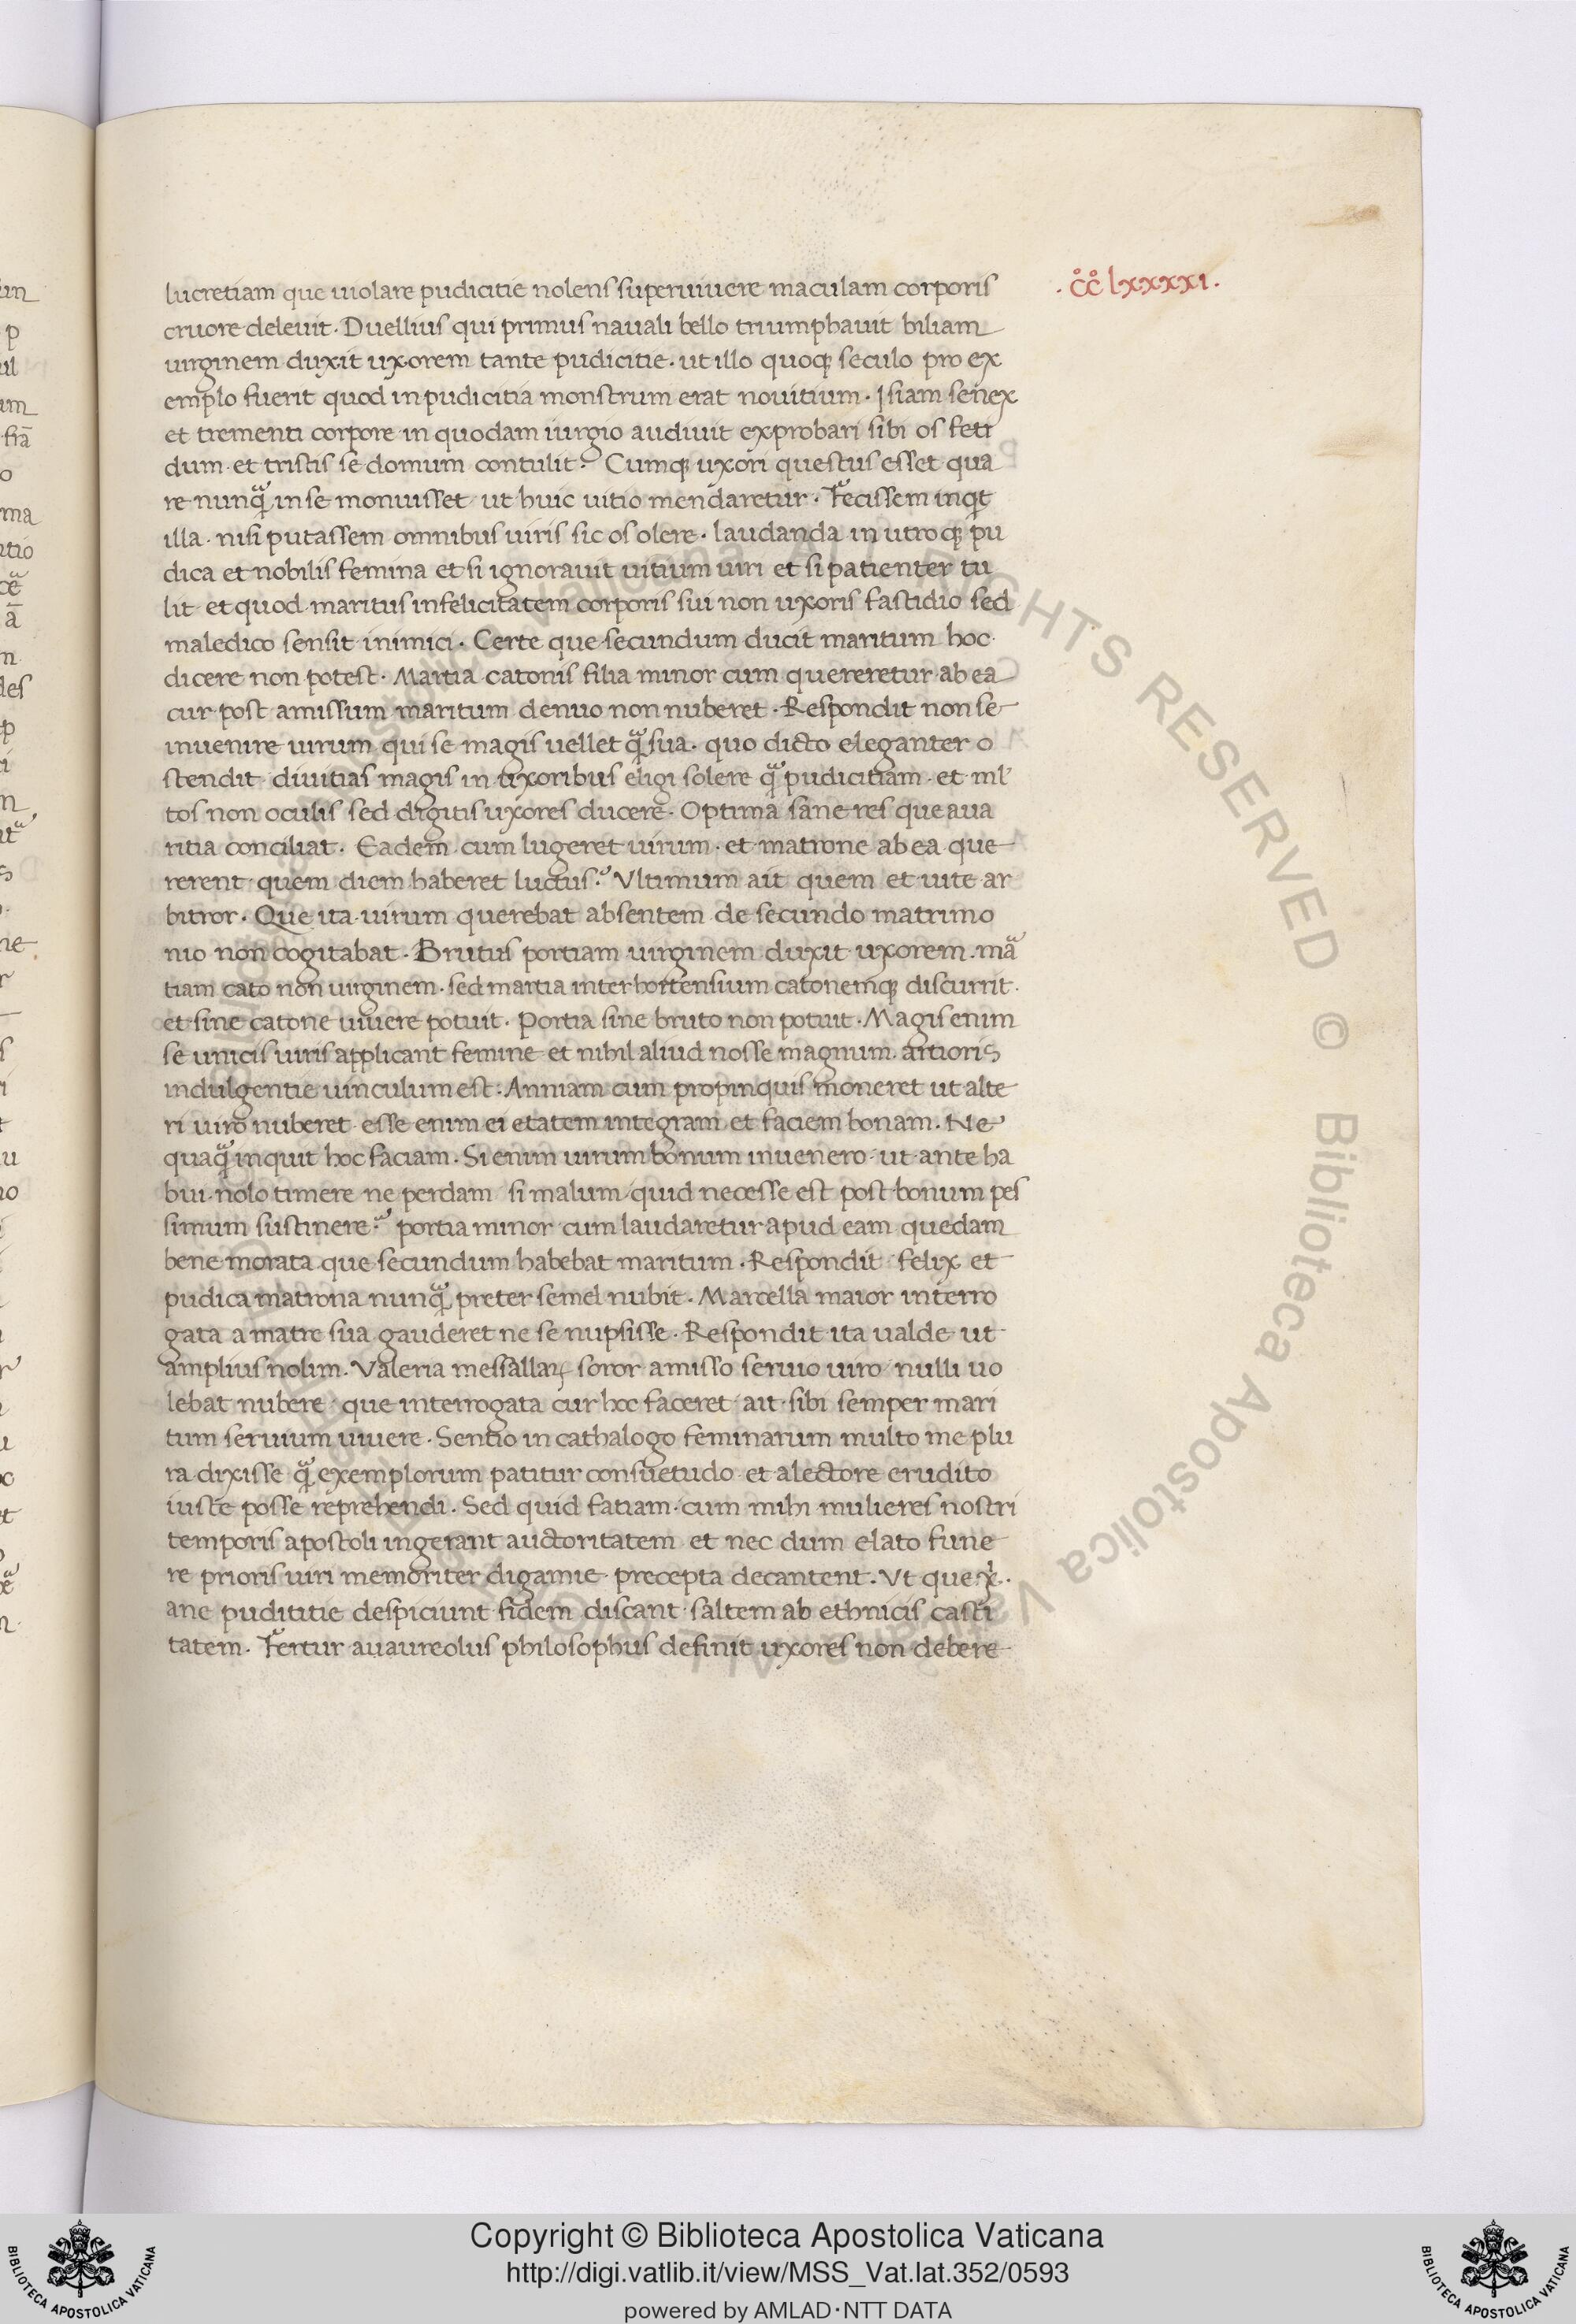 .c̊c̊ lxxxxi.
lucretiam que uiolare pudicitie nolens superuiuere maculam corporis
cruore deleuit. Duellius qui primus nauali bello triumphauit biliam
uirginem duxit uxorem tante pudicitie. ut illo quoqꝫ seculo pro ex
emplo fuerit quod inpudicitia monstrum erat nouitium. Isiam senex
et trementi corpore in quodam iurgio audiuit exprobari sibi os feti
dum et tristis se domum contulit. Cumqꝫ uxori questus esset qua
re nunqᷓ in se monuisset ut huic uitio mendaretur. Fecissem inqͥt
illa. nisi putassem omnibus uiris sic os olere. laudanda in utroqꝫ pu
dica et nobilis femina et si ignorauit uitium uiri et si patienter tu
lit et quod maritus infelicitatem corporis sui non uxoris fastidio sed
maledico sensit inimici. Certe que secundum ducit maritum hoc
dicere non potest. Martia catonis filia minor cum quereretur ab ea
cur post amissum maritum denuo non nuberet. Respondit non se
inuenire uirum qui se magis uellet qᷓ sua. quo dicto eleganter o
stendit diuitias magis in uxoribus eligi solere qᷓ pudicitiam. et ml'
tos non oculis sed digitis uxores ducere. Optima sane res que aua
ritia conciliat. Eadem cum lugeret uirum. et matrone ab ea que
rerent quem diem haberet luctus? Vltimum ait quem et uite ar
bitror. Que ita uirum querebat absentem de secundo matrimo
nio non cogitabat. Brutus portiam uirginem duxit uxorem. maᷓ
tiam cato non uirginem. sed martia inter hortensium catonemqꝫ discurrit.
et sine catone uiuere potuit. Portia sine bruto non potuit. Magis enim
se unicis uiris applicant femine et nihil aliud nosse magnum. artioris
indulgentie uinculum est. Anniam cum propinquis moneret ut alte
ri uiro nuberet esse enim ei etatem integram et faciem bonam. Ne
quaqᷓ inquit hoc faciam. Si enim uirum bonum inuenero ut ante ha
bui nolo timere ne perdam si malum quid necesse est post bonum pes
simum sustinere? portia minor cum laudaretur apud eam quedam
bene morata que secundum habebat maritum. Respondit felix et
pudica matrona nunqᷓ preter semel nubit. Marcella maior interro
gata a matre sua gauderet ne se nupsisse. Respondit ita ualde ut
amplius nolim. Valeria messallaꝝ soror amisso seruio uiro nulli uo
lebat nubere que interrogata cur hoc faceret ait sibi semper mari
tum seruium uiuere. Sentio in cathalogo feminarum multo me plu
ra dixisse qᷓ exemplorum patitur consuetudo et a lectore erudito
iuste posse reprehendi. Sed quid fatiam cum mihi mulieres nostri
temporis apostoli ingerant auctoritatem et nec dum elato fune
re prioris uiri memoriter digamie precepta decantent. Vt que xͥ.
ane pudititie despiciunt fidem discant saltem ab ethnicis casti
tatem. Fertur auaureolus philosophus definit uxores non debere
Copyright © Biblioteca Apostolica Vaticana
http://digi.vatlib.it/view/MSS_Vat.lat.352/0593
powered by AMLAD·NTT DATA